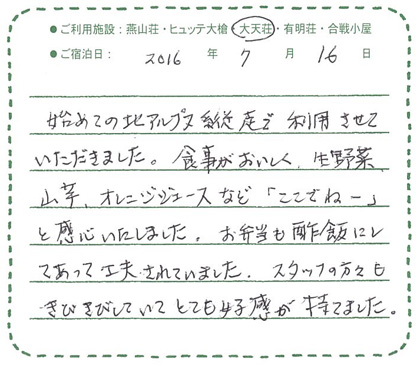 ●ご利用施設：燕山荘・ヒュッテ大槍・大天荘・有明荘・合戦小屋
●ご宿泊日： 2016 年 7 月 16 日
始めての北アルプス縦走で利用させて
いただきました。食事がおいしく、生野菜、
山芋、オレンジジュースなど「ここでねー」
と感心いたしました。お弁当も酢飯にし
てあって工夫されていました。スタッフの方々も
きびきびしていてとても好感が持てました。